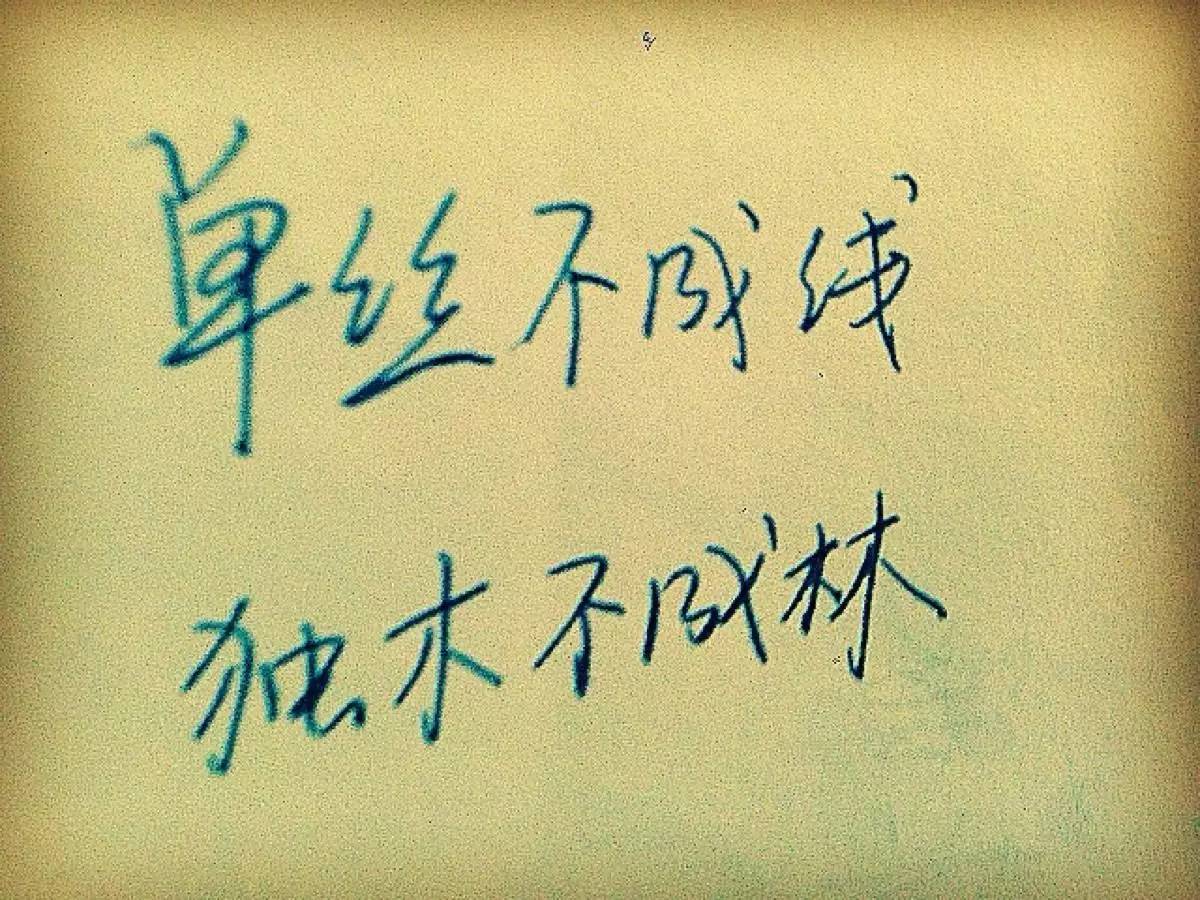 单丝不成线
独木不成林